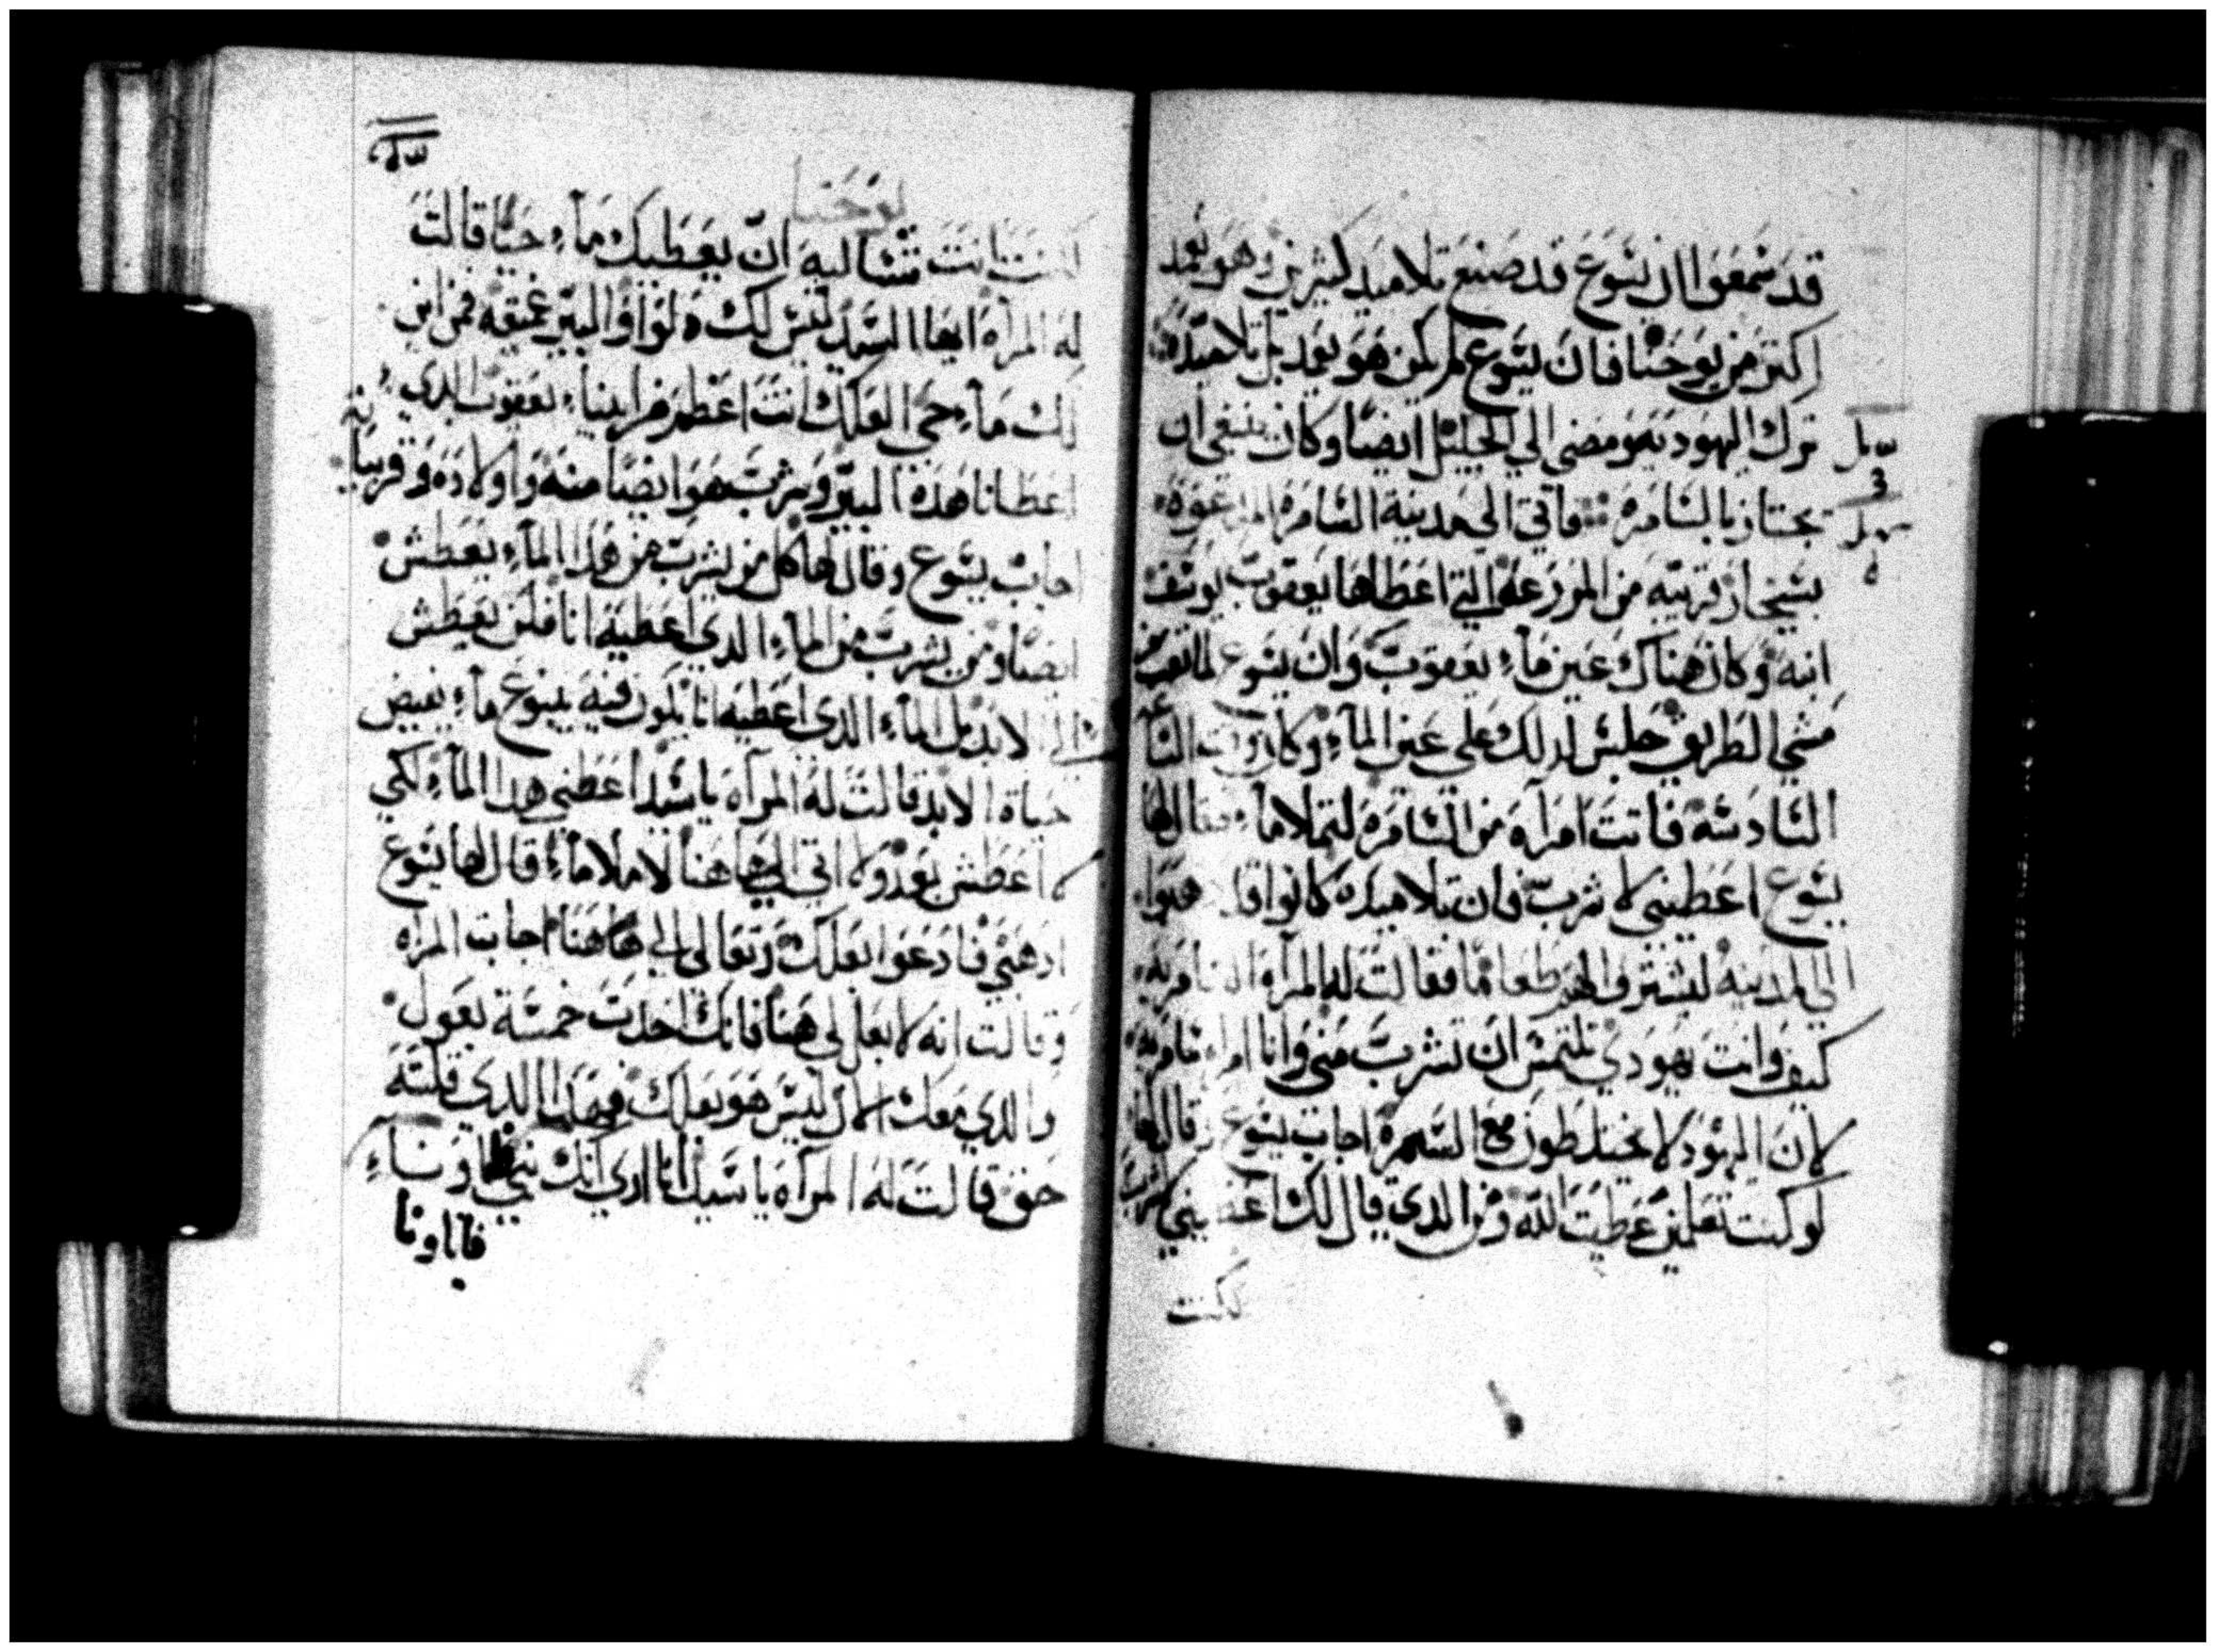 قد سمعوا ان يسوع قد صنع تلاميد كثيرين وهو يعمد
اكتر من يوحنا فان يسوع لم يكن هو يعمد بل تلاميده
ترك اليهوديه ومضى الي الجليل ايضا وكان ينبغي ان
يجتاز بالسامره فاتي الي مدينة السامره المدعوه
بسيخار قريبه من المزرعه التي اعطاها يعقوب يوسف
ابنه وكان هناك عين ماء يعقوب وان يسوع لما تعب من
مشي الطريق جلس لدلك علي عين الماء وكان وقت الساعه
السادسه فاتت امراه من السامره لتملا ماء فقال لها
يسوع اعطيني لاشرب فان تلاميده كانوا قد مضوا
الي المدينه ليشتروا لهم طعاما فقالت له المراه السامريه
كيف وانت يهودي تلتمس ان تشرب مني وانا امراه سامريه
لان اليهود لا يختلطون مع السمره اجاب يسوع وقال لها
لو كنت تعلمين عطيت الله ومن الدي قال لك اعطيني لاشرب
لكنت
يوحنا
لكنت انت تساليه ان يعطيك ماء حيا قالت
له المراه ايها السيد ليس لك دلوا والبير عميقه فمن اين
لك ماء حي العلك انت اعظم من ابينا يعقوب الدي
اعطانا هده البير وشرب هو ايضا منه واولاده وقرباينه
اجاب يسوع وقال لها كل من يشرب من هدا الماء يعطش
ايضا ومن يشرب من الماء الدي اعطيه انا فلن يعطش
الي الابد بل الماء الدي اعطيه انا يكون فيه ينبوع ماء يفيض
حياة الابد قالت له المراه يا سيد اعطني هدا الماء لكي
لا اعطش بعد ولا اتي الي هاهنا لاملا ماء قال لها يسوع
ادهبي فادعوا بعلك وتعالي الي هاهنا اجابت المراه
وقالت انه لا بعل لي هنا فانك اخدت خمسة بعول
والدي معك الان ليس هو بعلك فهدا الدي قلته
حق قالت له المراه يا سيد انا اري انك نبي اونا
فاباونا